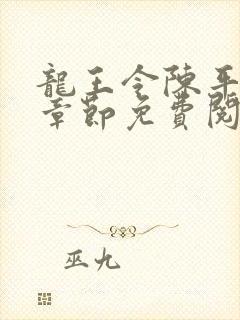 龍王令陳平
章節免費閱
巫九